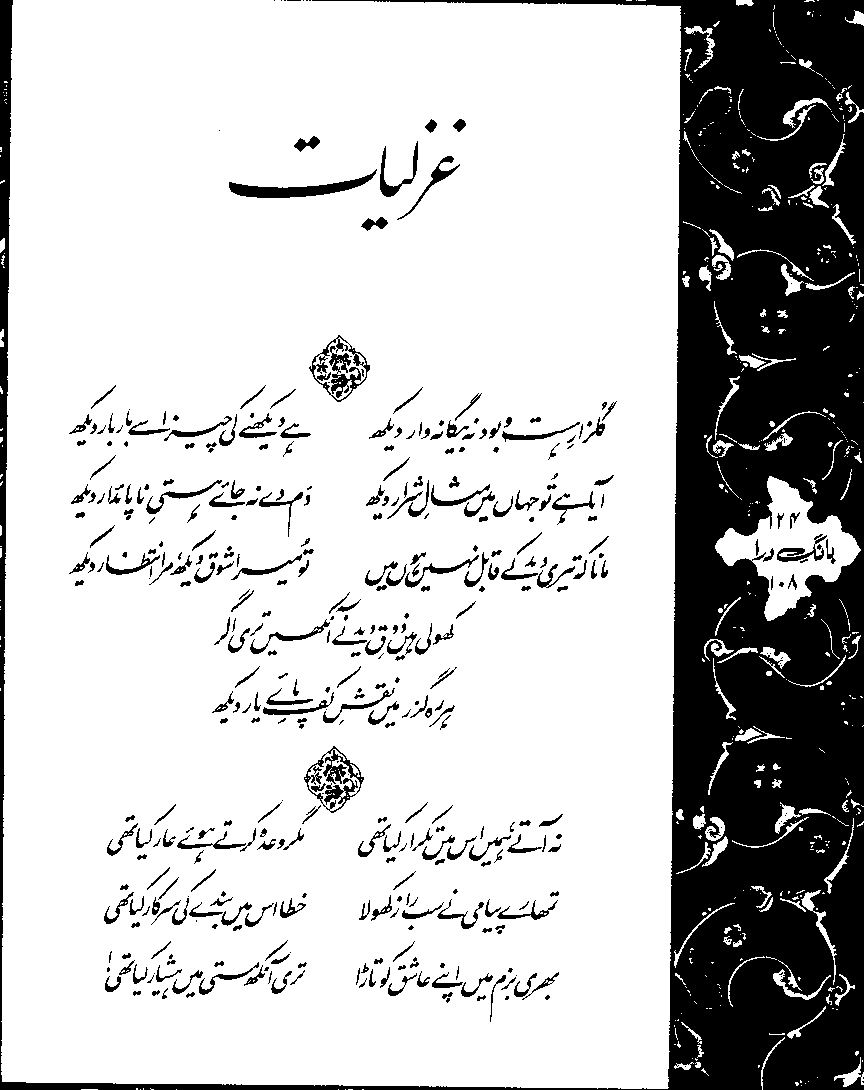 غزلیات
گلزارِ ہست و بود نہ بیگانہ وار دیکھ ہے دیکھنے کی چیز اسے بار بار دیکھ
آیا ہے تُو جہاں میں مثالِ شرار دیکھ دَم دے نہ جائے ہستیِ ناپائدار دیکھ
مانا کہ تیری دید کے قابل نہیں ہوں میں تُو میرا شوق دیکھ، مرا انتظار دیکھ
کھولی ہیں ذوقِ دید نے آنکھیں تری اگر
ہر رہ گزر میں نقشِ کفِ پائے یار دیکھ
نہ آتے، ہمیں اس میں تکرار کیا تھی مگر وعدہ کرتے ہوئے عار کیا تھی
تمھارے پیامی نے سب راز کھولا خطا اس میں بندے کی سرکار کیا تھی
بھری بزم میں اپنے عاشق کو تاڑا تری آنکھ مستی میں ہشیار کیا تھی!
۱۲۴
بانگِ درا
۱۰۸